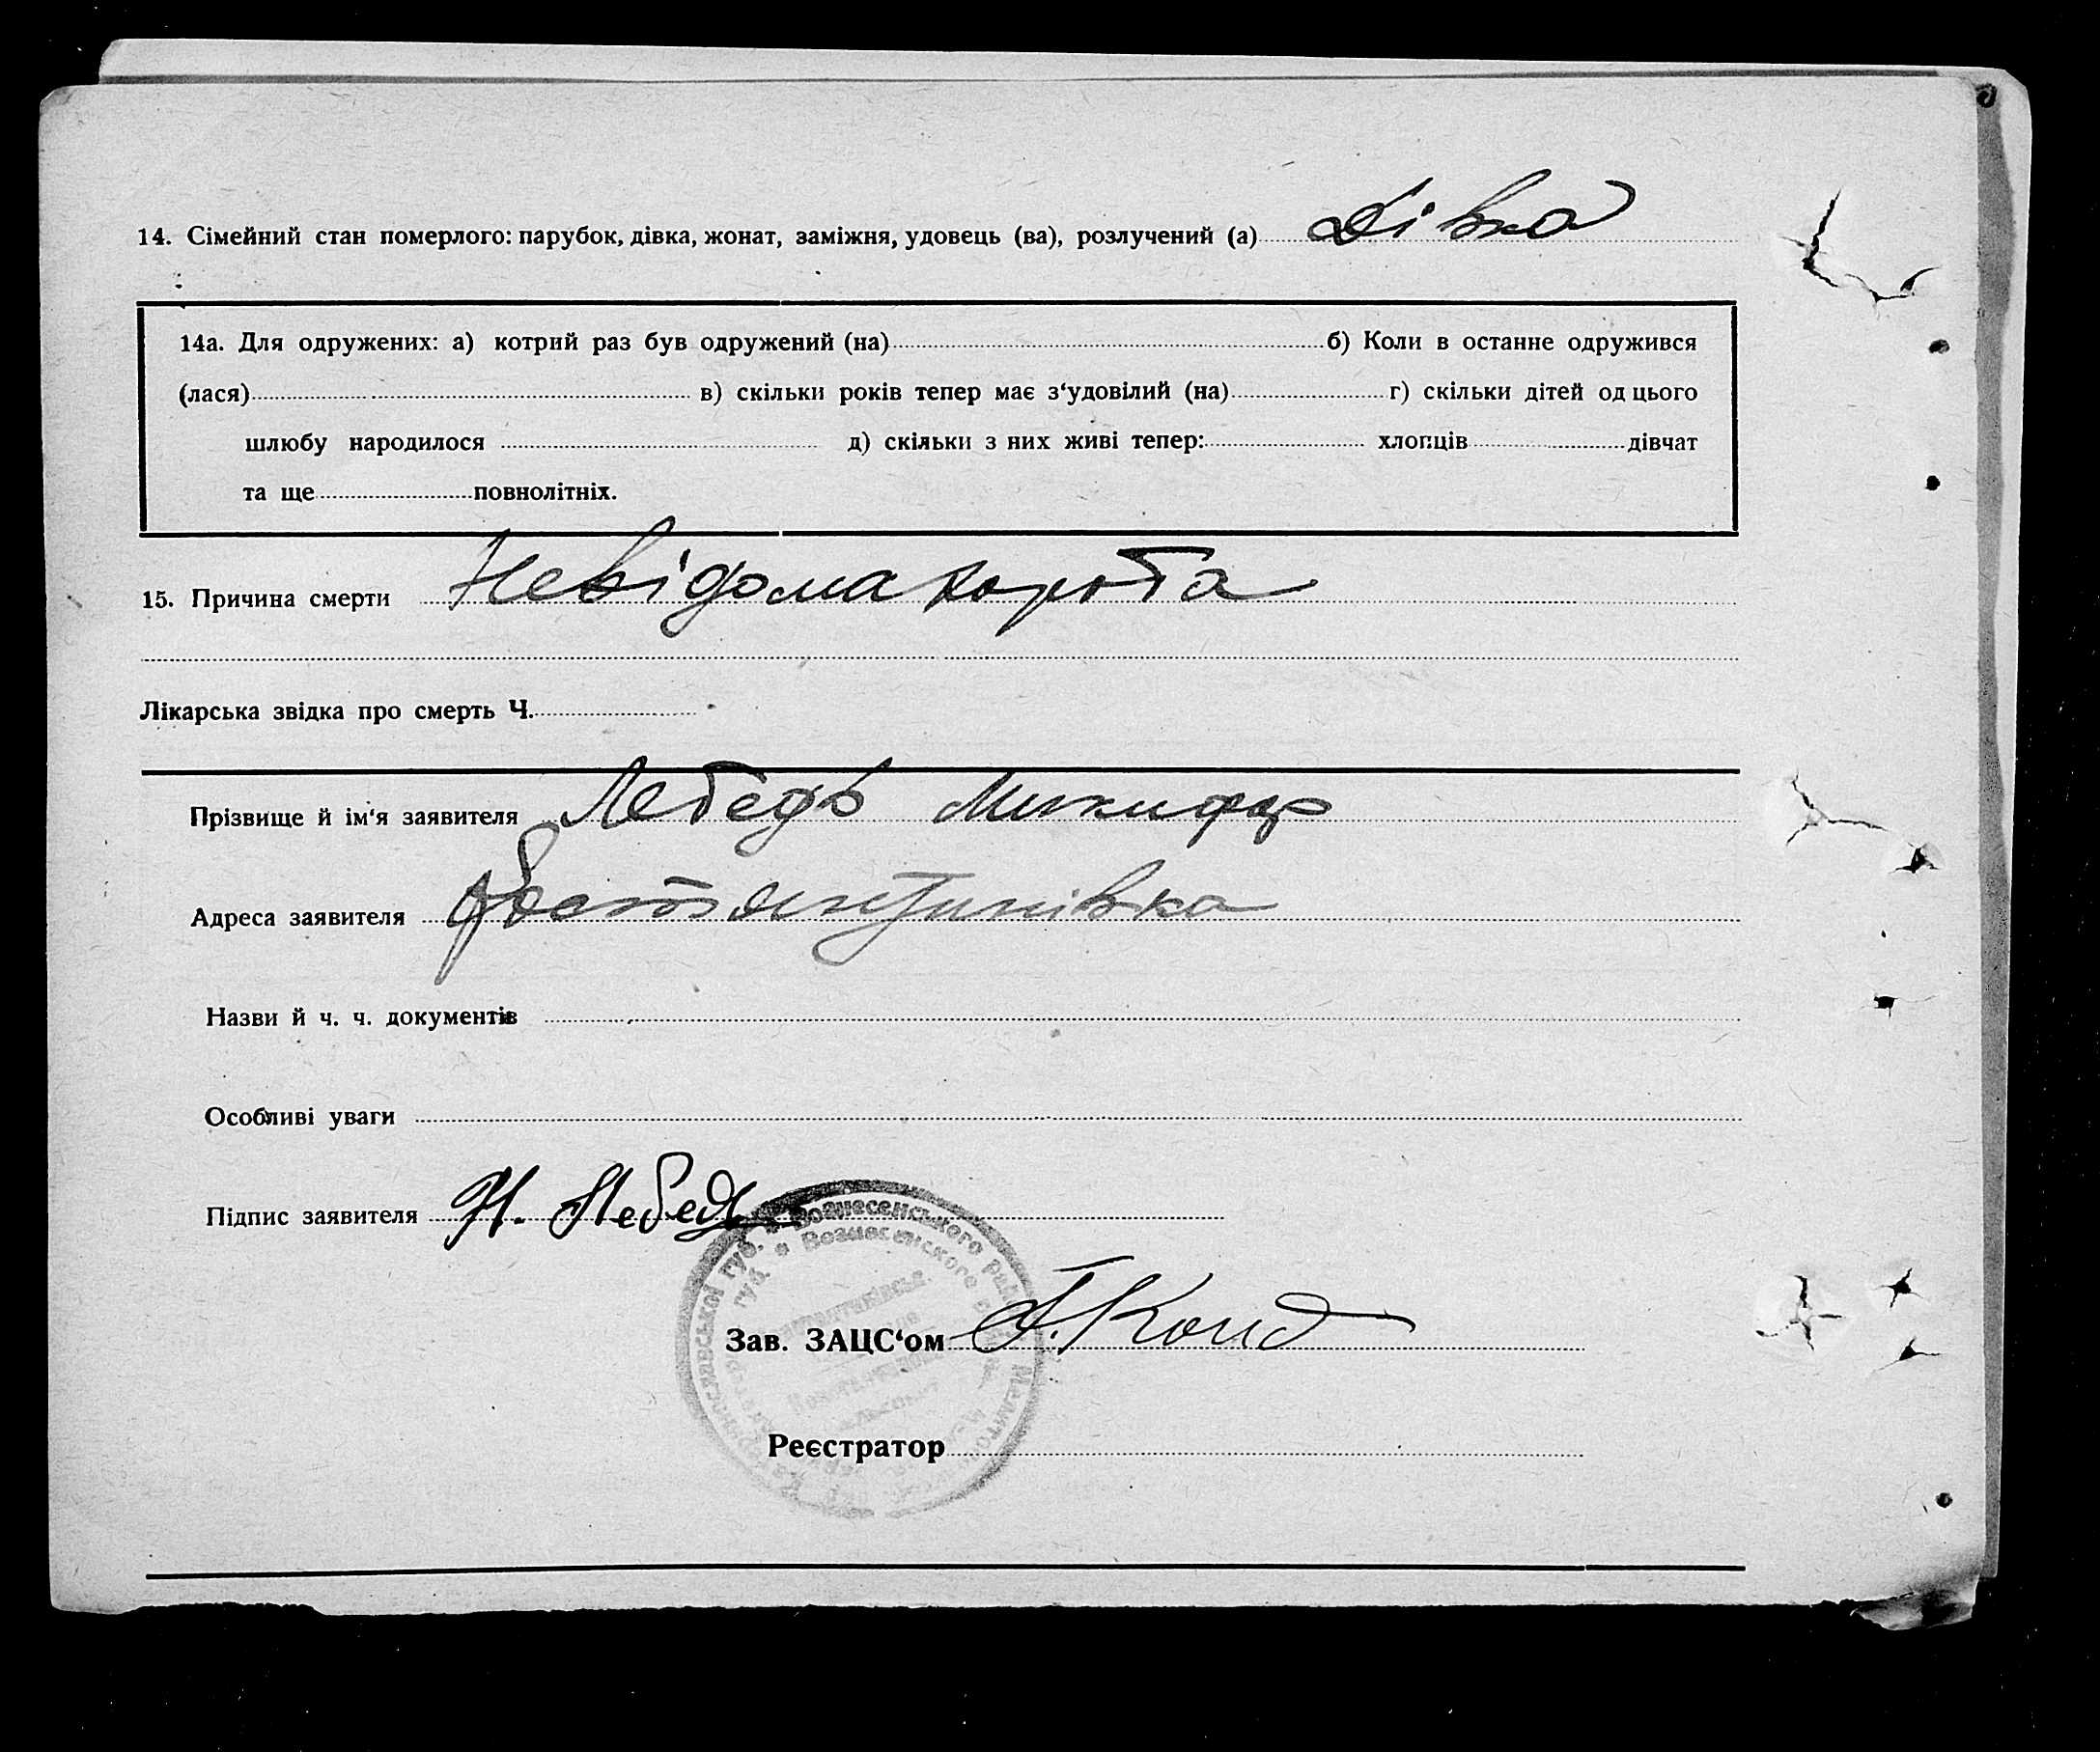 14. Сімейний стан померлого: парубок, дівка, жонат, заміжня, удовець (ва), розлучений (а) Дівка
14а. Для одружених: а) котрий раз був одружений (на) б) Коли в останнє одружився
(лася) в) скільки років тепер має з‘удовілий (на) г) скільки дітей од цього
шлюбу народилося д) скільки з них живі тепер: хлопців дівчат
та ще повнолітніх.
15. Причина смерти Невідома хороба
Лікарська звідка про смерть Ч.
Прізвище й ім‘я заявителя Лебедь Микифор
Адреса заявителя Костянтинівка
Назви й ч. ч. документів
Особливі уваги
Підпис заявителя Н. Лебедь
Вознесенського
губ. Вознесенского
Зав. ЗАЦС‘ом
Реєстратор